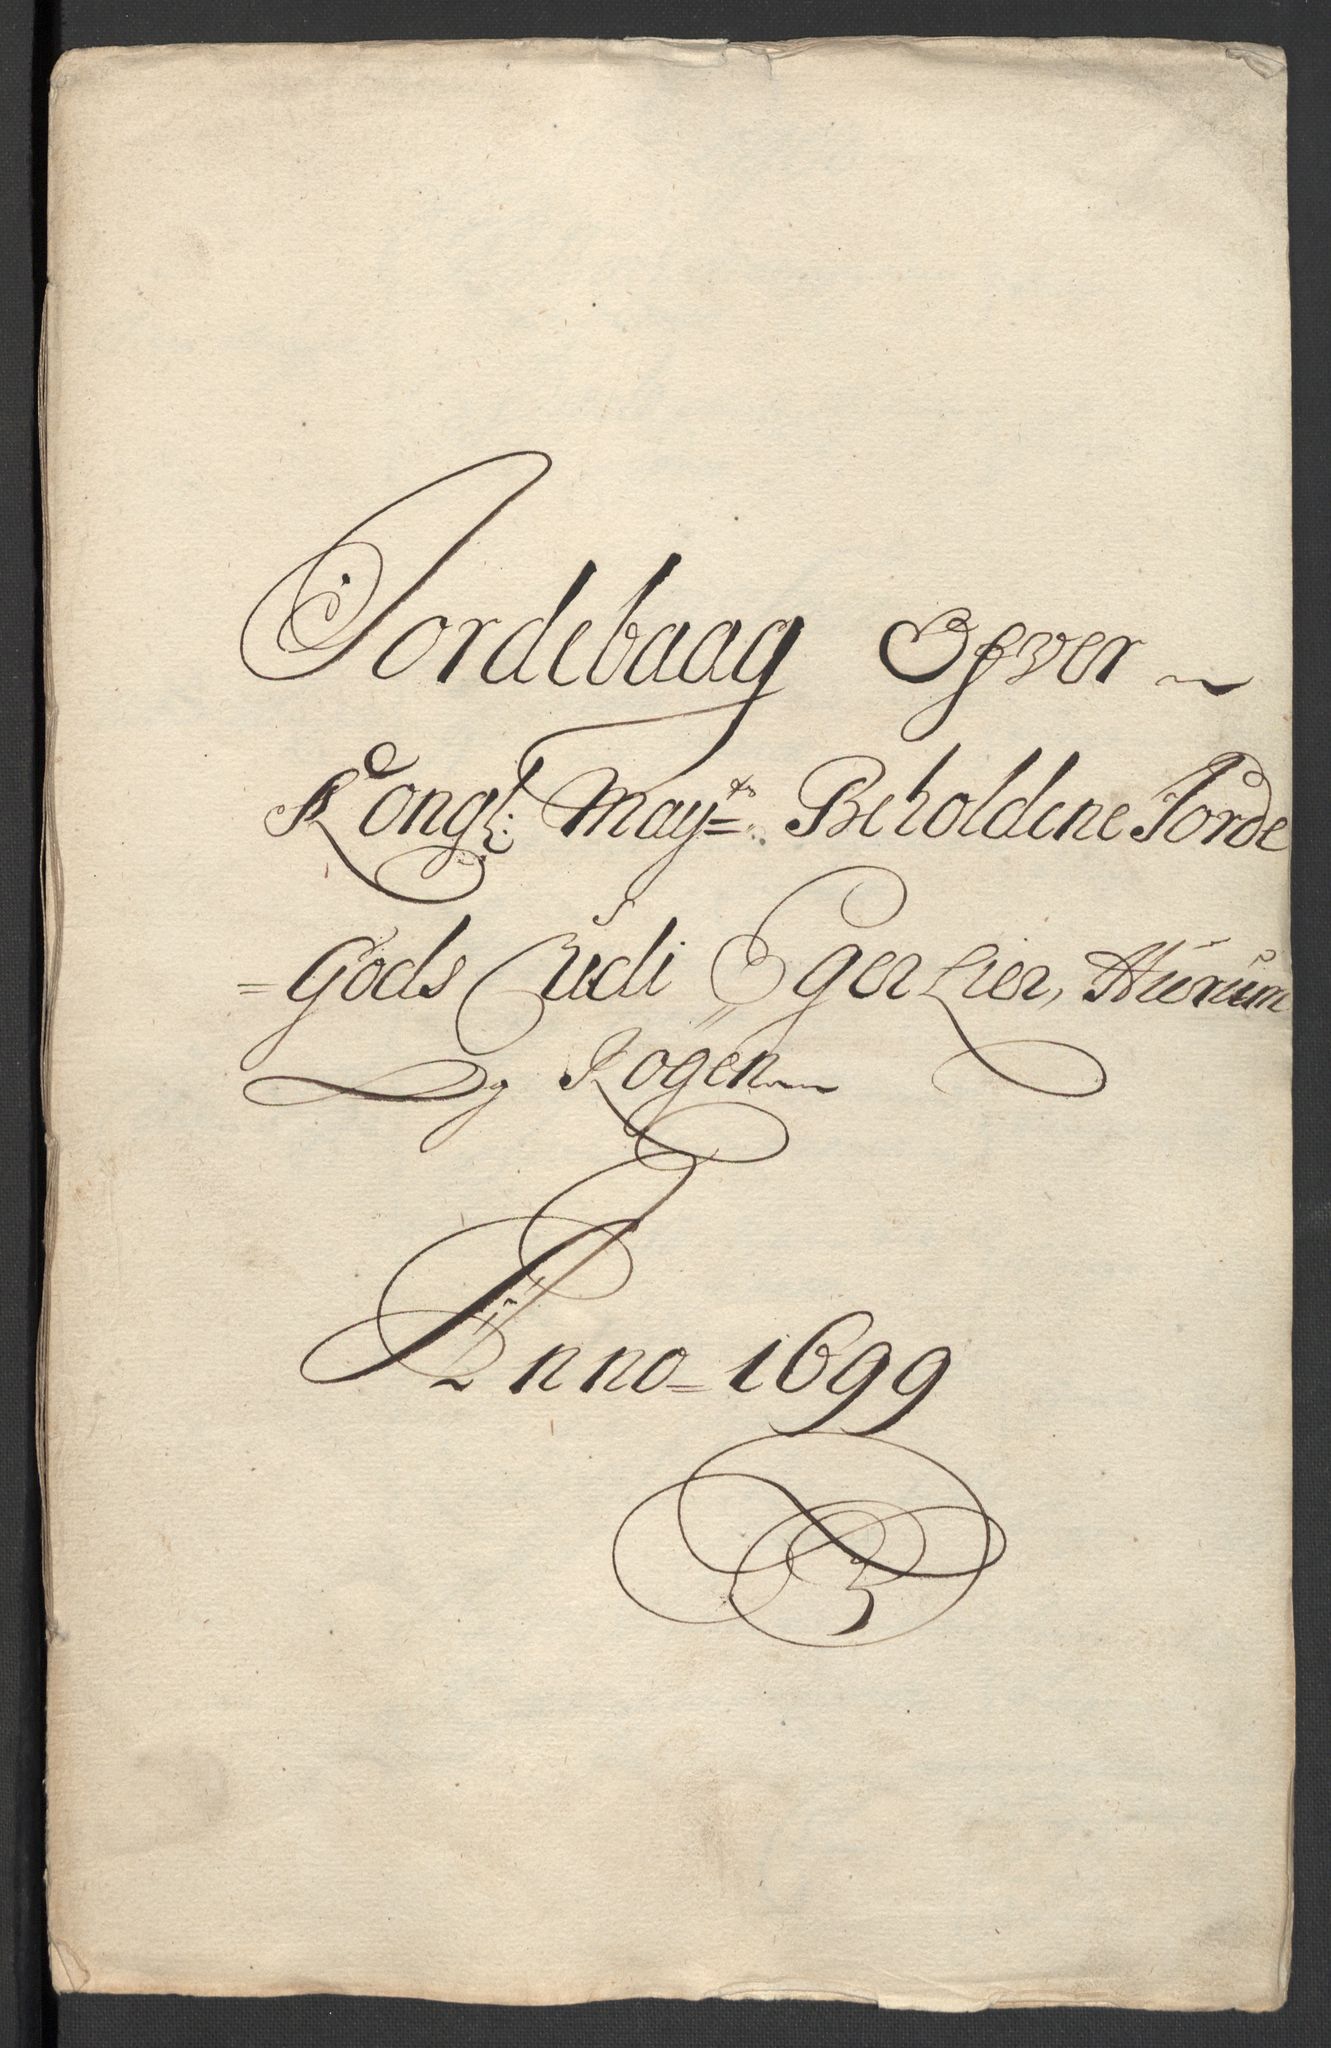 Jordebaag Ofver
Kongl: May:ts Beholdene Jorde
=Gods Udi Eger Lier, Hurum
Og Rögen
Anno=1699